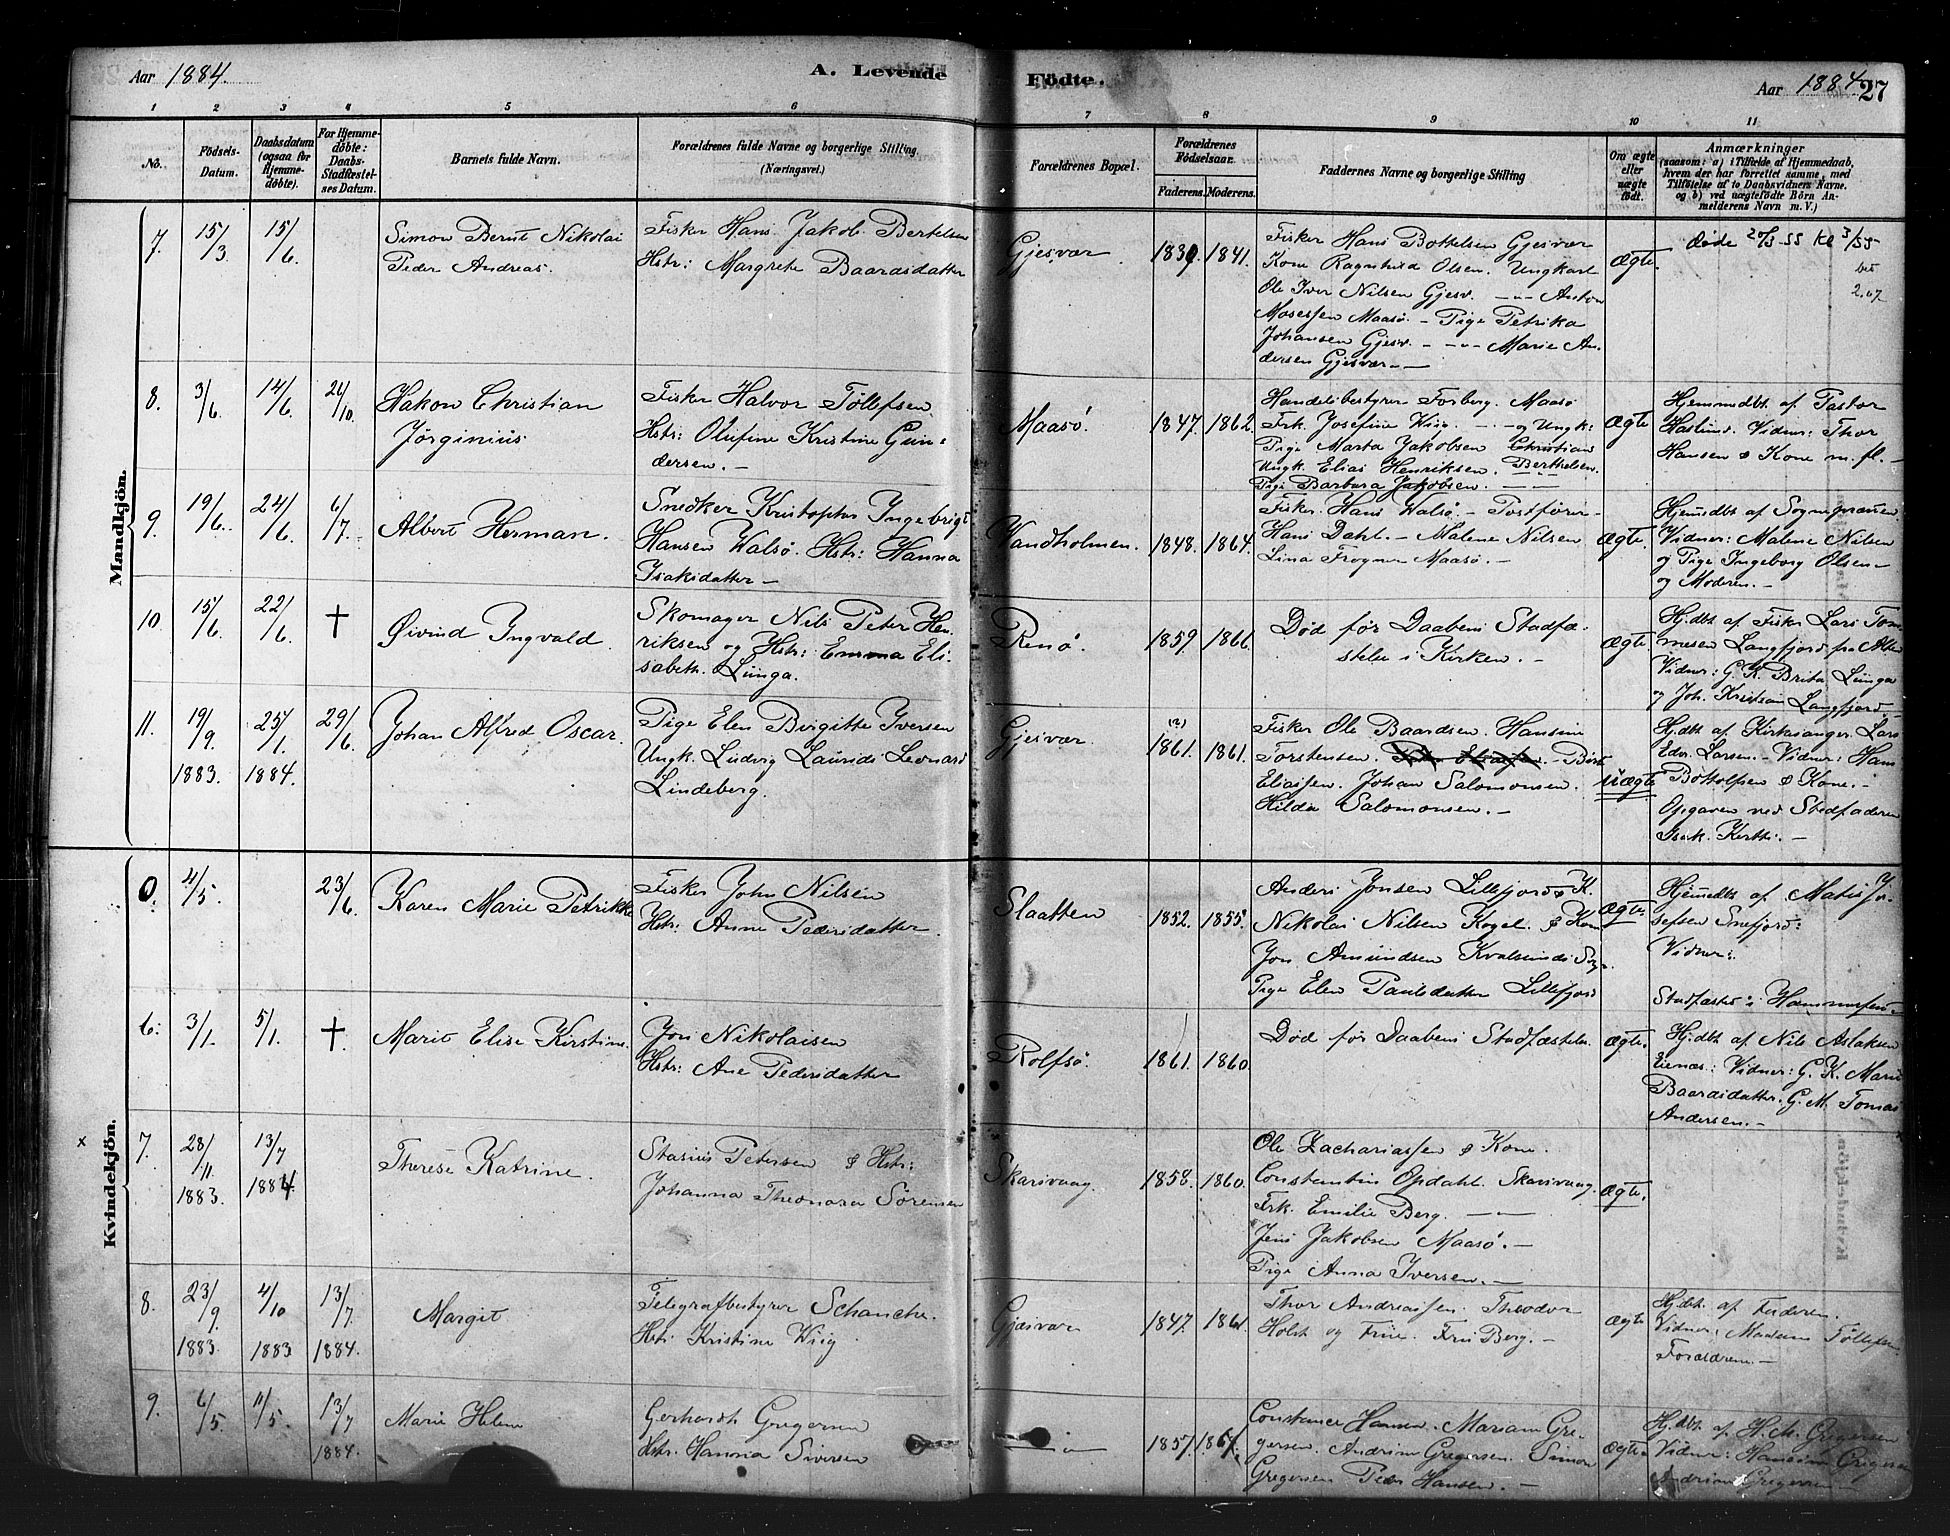 Aar 1884.
A. Levende
Födte.
Aar 1884 27
1 2 3 4 5 6 7 8 9 10 11
No.
Födsels-Datum.
Daabsdatum (ogsaa for Hjemme-døbte).
For Hjemme-døbte: Daabs-Stadfæstel-ses Datum.
Barnets fulde Navn.
Forældrenes fulde Navne og borgerlige Stilling.
(Næringsvei.)
Forældrenes Bopæl.
Forældrenes Födselsaar.
Faderens. Moderens.
Faddernes Navne og borgerlige Stilling
Om ægte eller uægte födt.
Anmærkninger
(saasom: a) i Tilfælde af Hjemmedaab,
hvem der har forrettet samme, med
Tilföielse af to Daabsvidners Navne.
og b) ved uægtefödte Börn An-
melderens Navn m. V.)
Mandkjön.
7. 15/3 15/6
Simon Bernt Nikolai
Peder Andreas.
Fisker Hans Jakob Bertelsen
Hstr: Margrete Baardsdatter
Gjesvær. 1839. 1841.
Fisker Hans Bottelsen Gjesvær
Kone Ragnhild Olsen. Ungkarl
Ole Iver Nilsen Gjesv. — " — Anton
Mosessen Maasø. — Pige Petrika
Johansen Gjesv. — — " — Marie An-
dersen Gjesvær — —
Ægte.
døde 20/3-55 Kl 3/55-
8. 3/6. 14/6. 26/10.
Hakon Christian
Jørginius
Fisker Halvor Tøllefsen
Hstr: Olufine Kristine Gun-
dersen. —
Maasø. 1847. 1862.
Handelsbestyrer Forberg. Maasø
Frk. Josefine Wiig. — og Ungk:
Pige Marta Jakobsen Christian
Ungk. Elias Henriksen. Berthelsen.
Pige Barbara Jakobsen. — —
Ægte
Hjemmedbt. af Pastor
Haslund. Vidner: Thor
Hansen & Kone m. fl. —
9. 19/6. 24/6. 6/7.
Albert Herman.
Snedker Kristopher Ingebrigt
Hansen Walsø. Hstr: Hanna
Isaksdatter —
Vandholmen. 1848. 1864.
Fisker. Hans Walsø. — Postfører —
Hans Dahl. — Malene Nilsen
Lina Frogner Maasø. —
Ægte.
Hjemdbt af Sognepræsten.
Vidner: Malene Nilsen
og Pige Ingeborg Olsen —
og Moderen. —
10. 15/6. 22/6. †
Øivind Ingvald.
Skomager Nils Peter Hen-
riksen og Hstr: Emma Eli-
sabeth. Lünga.
Rensø. 1859. 1866.
Død før Daabens Stadfæ-
stelse i Kirken. —
ægte.
Hj.dbt af Fisker Lars Tom-
mesen Langfjord fra Alten
Vidner: G. K. Brita Lünga
og Joh. Kristian Langfjord.
11. 19/9 1883. 25/1. 1884. 29/6.
Johan Alfred Oscar.
Pige Elen Birgitte Iversen
Ungk. Ludvig Laurids Leonard
Lindeberg.
Gjesvær. (?) 1861. 1861.
Fisker Ole Baardsen. Hansine
Torstensen. Børit
Eliassen. Johan Salomonsen.
Hilda Salomonsen. —
uægte
Hj.dbt af Kirkesanger Lars
Edv. Larsen. — Vidner: Hans
Bottolfsen & Kone. —
Opgaven ved Stedfaderen
Isak. Kerttu. —
Kvindekjön.
0. 4/5. 23/6
Karen Marie Petrikke
Fisker John Nilsen
Hstr: Anne Pedersdatter.
Slaatten 1852. 1855.
Anders Jonsen Lillefjord & K.
Nikolai Nilsen Kogel. & Kone
Jon Amundsen Kvalsund
Pige Elen Paulsdatter Lillefjord
ægte.
Hjemdbt af Matis Jo-
sefsen Snefjord:
Vidner:
Stadfæstet i Hammerfest
6. 3/1. 5/1. †
Marit Elise Kirstine
Jon Nikolaisen
Hstr: Ane Pedersdatter
Rolfsø. 1861. 1860.
Død før Daabens Stadfæstelse
ægte.
Hj.dbt. af Nils Aslaksen
Eienæs: Vidner: G. K. Marie
Baardsdatter. G. M. Tomas
Andersen. —
x 7. 28/11. 1883. 13/7 1884.
Therese Katrine.
Stasius Petersen & Hstr:
Johanna Theonora Sørensen
Skarsvaag. 1858. 1860.
Ole Zachariassen & Kone.
Constantin Opdahl. Skarsvaag.
Frk. Emilie Berg. — —
Jens Jakobsen Maasø. —
Pige Anna Iversen. —
ægte.
8. 23/9 1883. 4/10 1883 13/7 1884.
Margit
Telegrafbestyrer Schanche.
Hstr: Kristine Wiig
Gjesvær 1847. 1861.
Thor Andreassen. Theodor
Holst og Frue. Fru Berg. —
ægte
Hj.dbt. af Faderen.
Vidner: Madam Tøllefsen.
Forældrene —
9. 6/5 11/5. 13/7 1884.
Marie Helene
Gerhardt Gregersen
Hstr. Hanna Siversen
— " — 1857. 1867.
Constance Hansen. Mariam Gre-
gersen. Andrine Gregersen. Simon
Gregersen Peder Hansen. —
ægte.
Hj.dbt af H. M. Gregersen
Vidner: Hansine Gregersen
Andrine Gregersen —